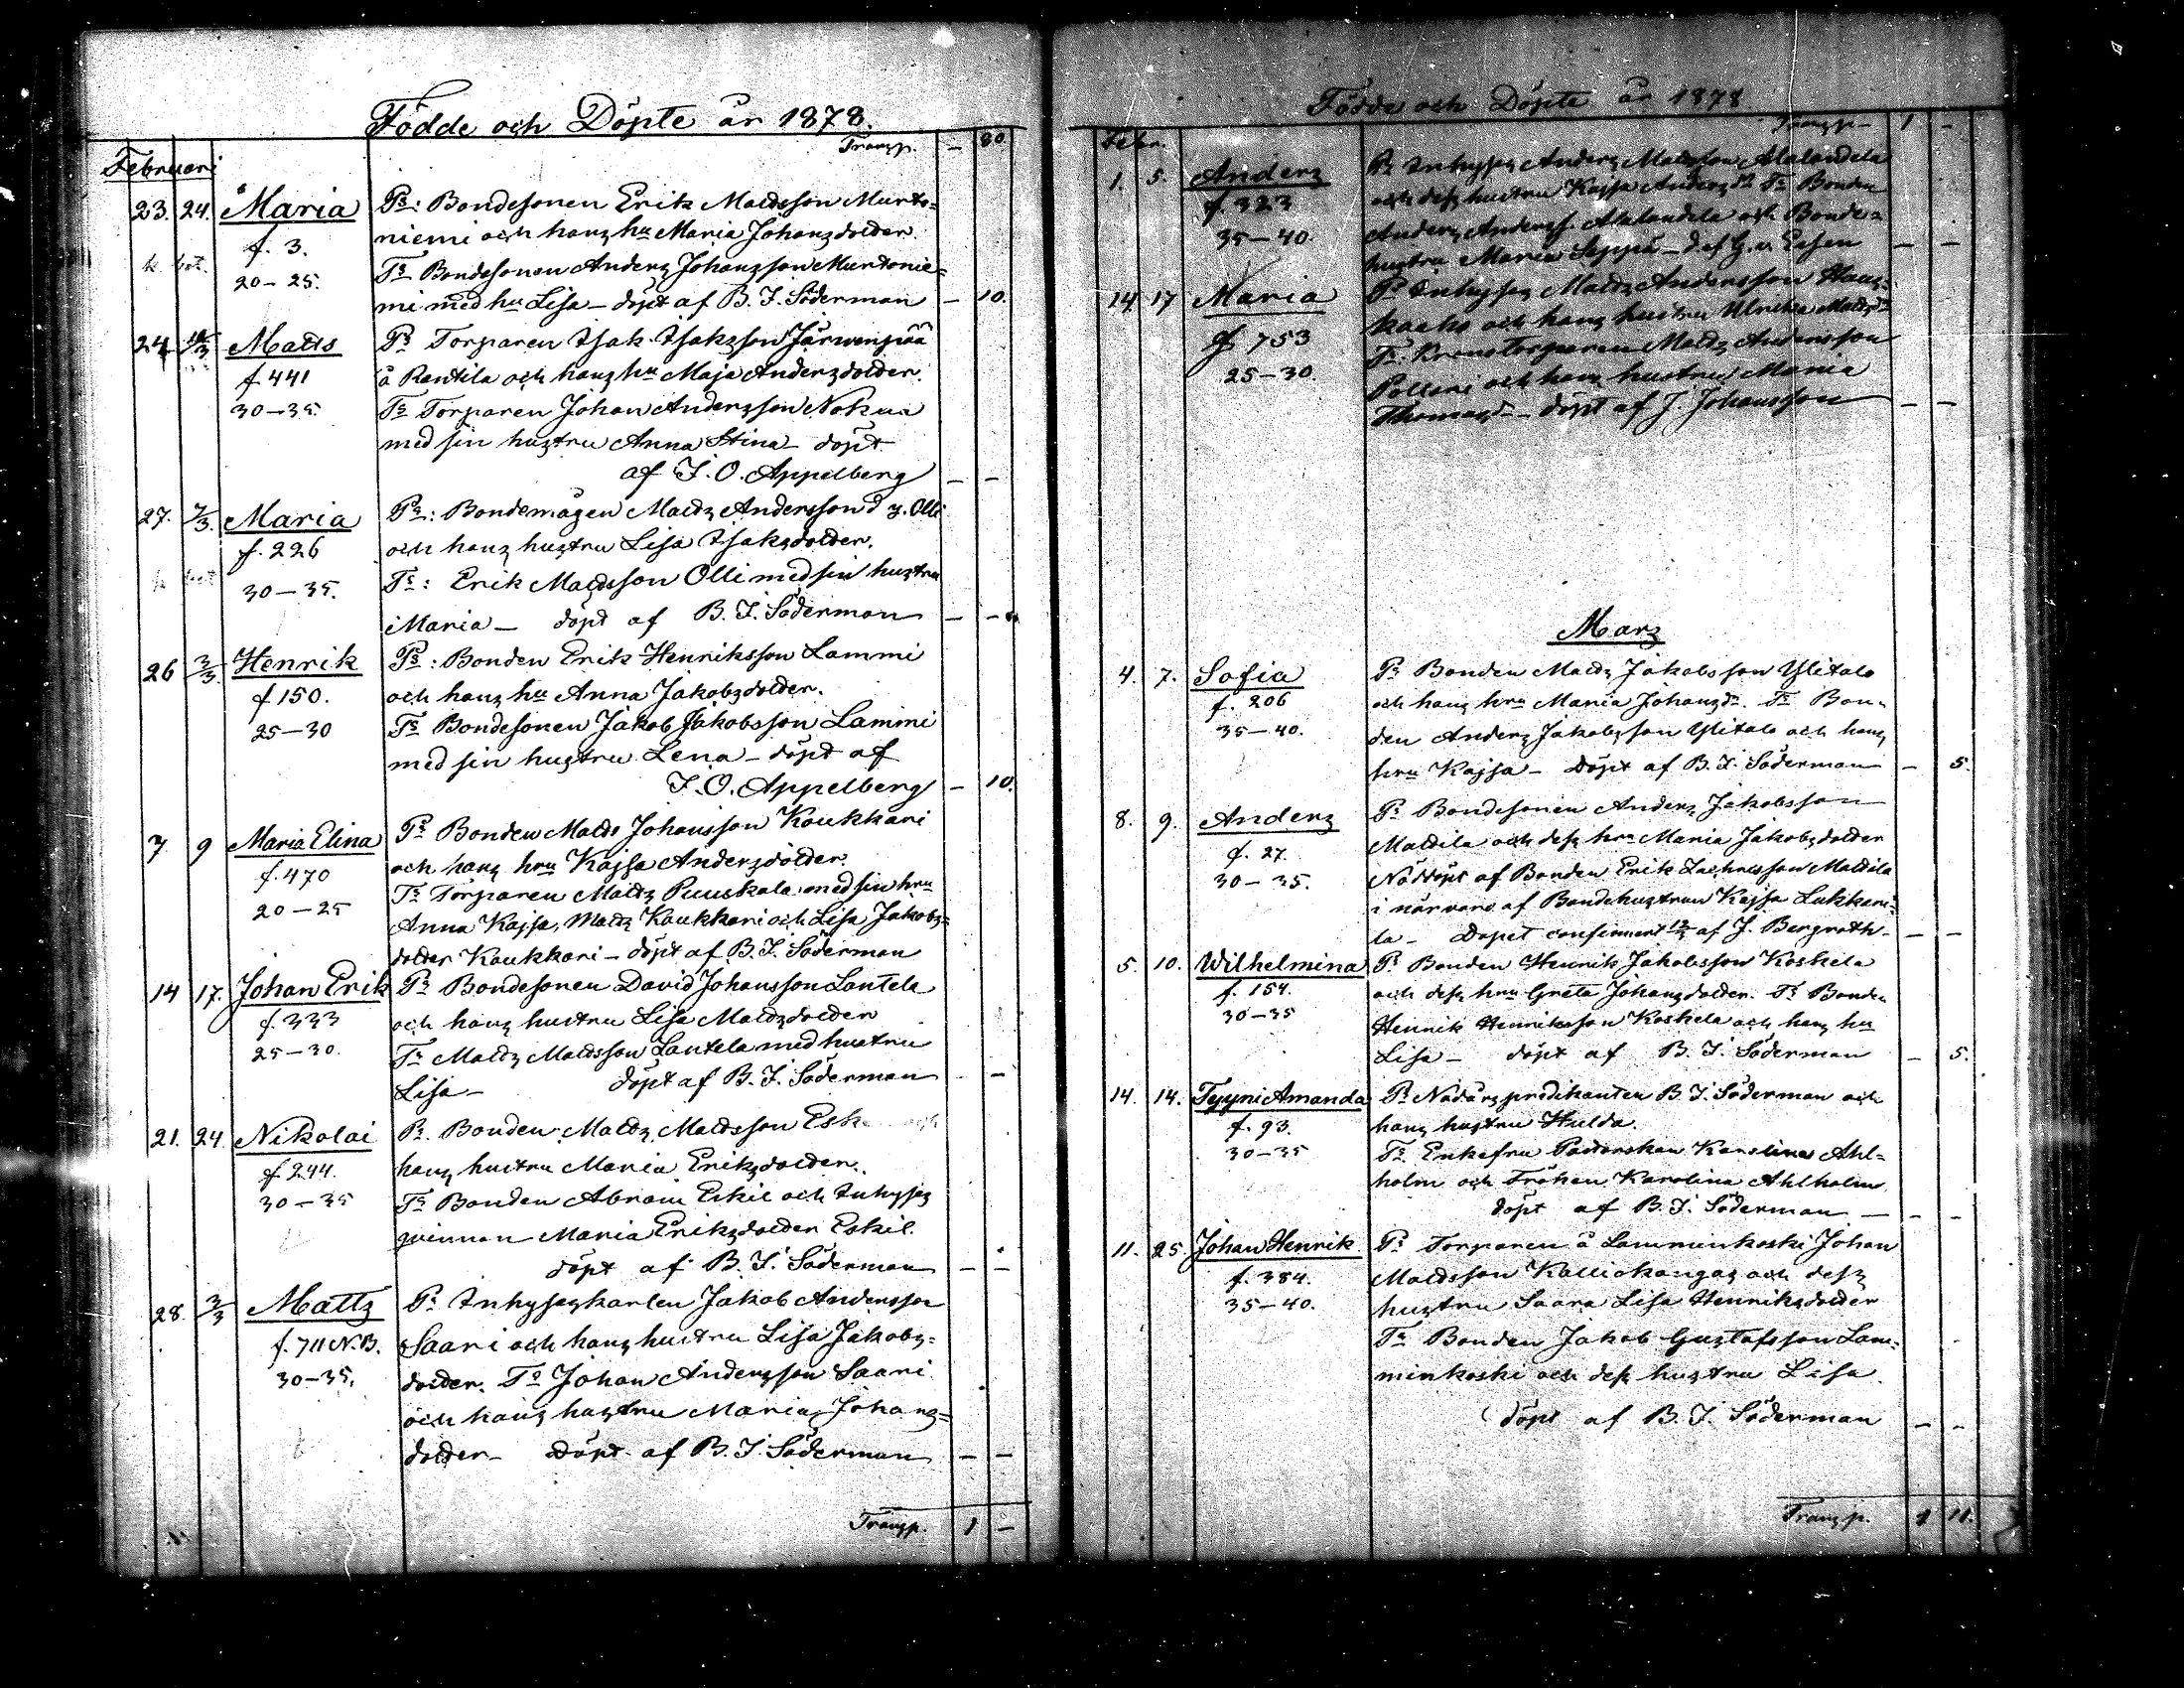 Födde och Döpte år 1878.
Transp. — 80.
Februari
23. 24. Maria Ps: Bondesonen Erik Mattsson Murto=
f. 3. niemi och hans hu Maria Johansdotter.
20-25. Ts Bondesonen Anders Johansson Murtonie=
mi med hu Lisa — döpt af B. I. Söderman — 10.
24 Matts Ps Torparen Isak Isaksson Järwenpää
f. 441 å Rantila och hans hu Maja Andersdotter.
30-35. Ts Torparen Johan Andersson Nokua
med sin hustru Anna Stina — döpt
af I. O. Appelberg — —
27. 7/3. Maria Ps: Bondemågen Matts Andersson d y. Olli
f. 226 och hans hustru Lisa Isaksdotter.
30-35. Ts: Erik Mattsson Olli med sin hustru
Maria — döpt af B. I. Söderman — —
26 3/3. Henrik Ps: Bonden Erik Henriksson Lammi
f 150. och hans hu Anna Jakobsdotter.
25-30 Ts Bondesonen Jakob Jakobsson Lammi
med sin hustru Lena — döpt af
I. O. Appelberg — 10.
7 9 Maria Elina Ps Bonden Matts Johansson Koukkari
f. 470 och hans hru Kajsa Andersdotter.
20-25 Ts Torparen Matts Puuskala med sin hru
Anna Kajsa, Matts Koukkari och Lisa Jakobs=
dotter Koukkari — döpt af B. I. Söderman
14 17. Johan Erik Ps Bondesonen David Johansson Lantela
f. 333 och hans hustru Lisa Mattsdotter
25-30. Ts Matts Mattsson Lantela med hustru
Lisa — döpt af B. I. Söderman —
21. 24. Nikolai Ps. Bonden Matts Mattsson Esk
f 244. hans hustru Maria Eriksdotter.
30-35 Ts Bonden Abram Eskil och Inhyses
qvinnan Maria Eriksdotter Eskil.
döpt af B. I. Söderman — —
28. 3/3 Matts Ps Inhyseskarlen Jakob Andersson
f. 711 N.B. Saari och hans hustru Lisa Jakobs=
30-35. dotter. Ts Johan Andersson Saari
och hans hustru Maria Johans=
dotter — Döpt af B. I. Söderman — —
Transp. 1 —
Födde och Döpte år 1878
Transp — 1 —
Febr.
1. 5. Anders Ps Inhyses Anders Mattsson Alalandela
f. 323 och dess hustru Kajsa Andersdr Ts Bonden
35-40. Anders Anderss. Alalandela och Bonde=
hustru Maria Seppä — d. af G. v. Essen — —
14 17 Maria Ps Inhyses Matts Andersson Haus=
f 753 kaoho och hans hustru Ulrika Mattsdr
25-30. Ts. Kronotorparen Matts Andersson
Pollari och hans hustru Maria
Thomasdr — döpt af J. Johansson — —
Mars
4. 7. Sofia Ps Bonden Matts Jakobsson Ylitalo
f. 206 och hans hru Maria Johansdr. Ts Bon=
35-40. den Anders Jakobsson Ylitalo och hans
hru Kajsa — Döpt af B. I. Söderman — 5.
8. 9. Anders Ps Bondesonen Anders Jakobsson
f. 27. Mattila och dess hru Maria Jakobsdotter
30-35. Nöddöpt af Bonden Erik Zachrisson Mattila
i närvaro af Bondehustrun Kajsa Lukkari=
la — Dopet confirmert af J. Bergroth — — —
5. 10. Wilhelmina Ps Bonden Henrik Jakobsson Koskela
f. 154. och dess hru Greta Johansdotter. Ts Bonden
30-35 Henrik Henriksson Koskela och hans hu
Lisa — döpt af B. I. Söderman — 5.
14. 14. Tyyni Amanda Ps Nådårspredikanten B. I. Söderman och
f. 93. hans hustru Hulda.
30-35 Ts. Enkefru Pastorskan Karolina Ahl=
holm och Fröken Karolina Ahlholm
döpt af B. I. Söderman — — —
11. 25. Johan Henrik Ps Torparen å Lamminkoski Johan
f. 384. Mattsson Kalliokangas och dess
35-40. hustru Saara Lisa Henriksdotter
Ts Bonden Jakob Gustafsson Lam=
minkoski och dess hustru Lisa.
döpt af B. I. Söderman — —
Transp. 1 11.